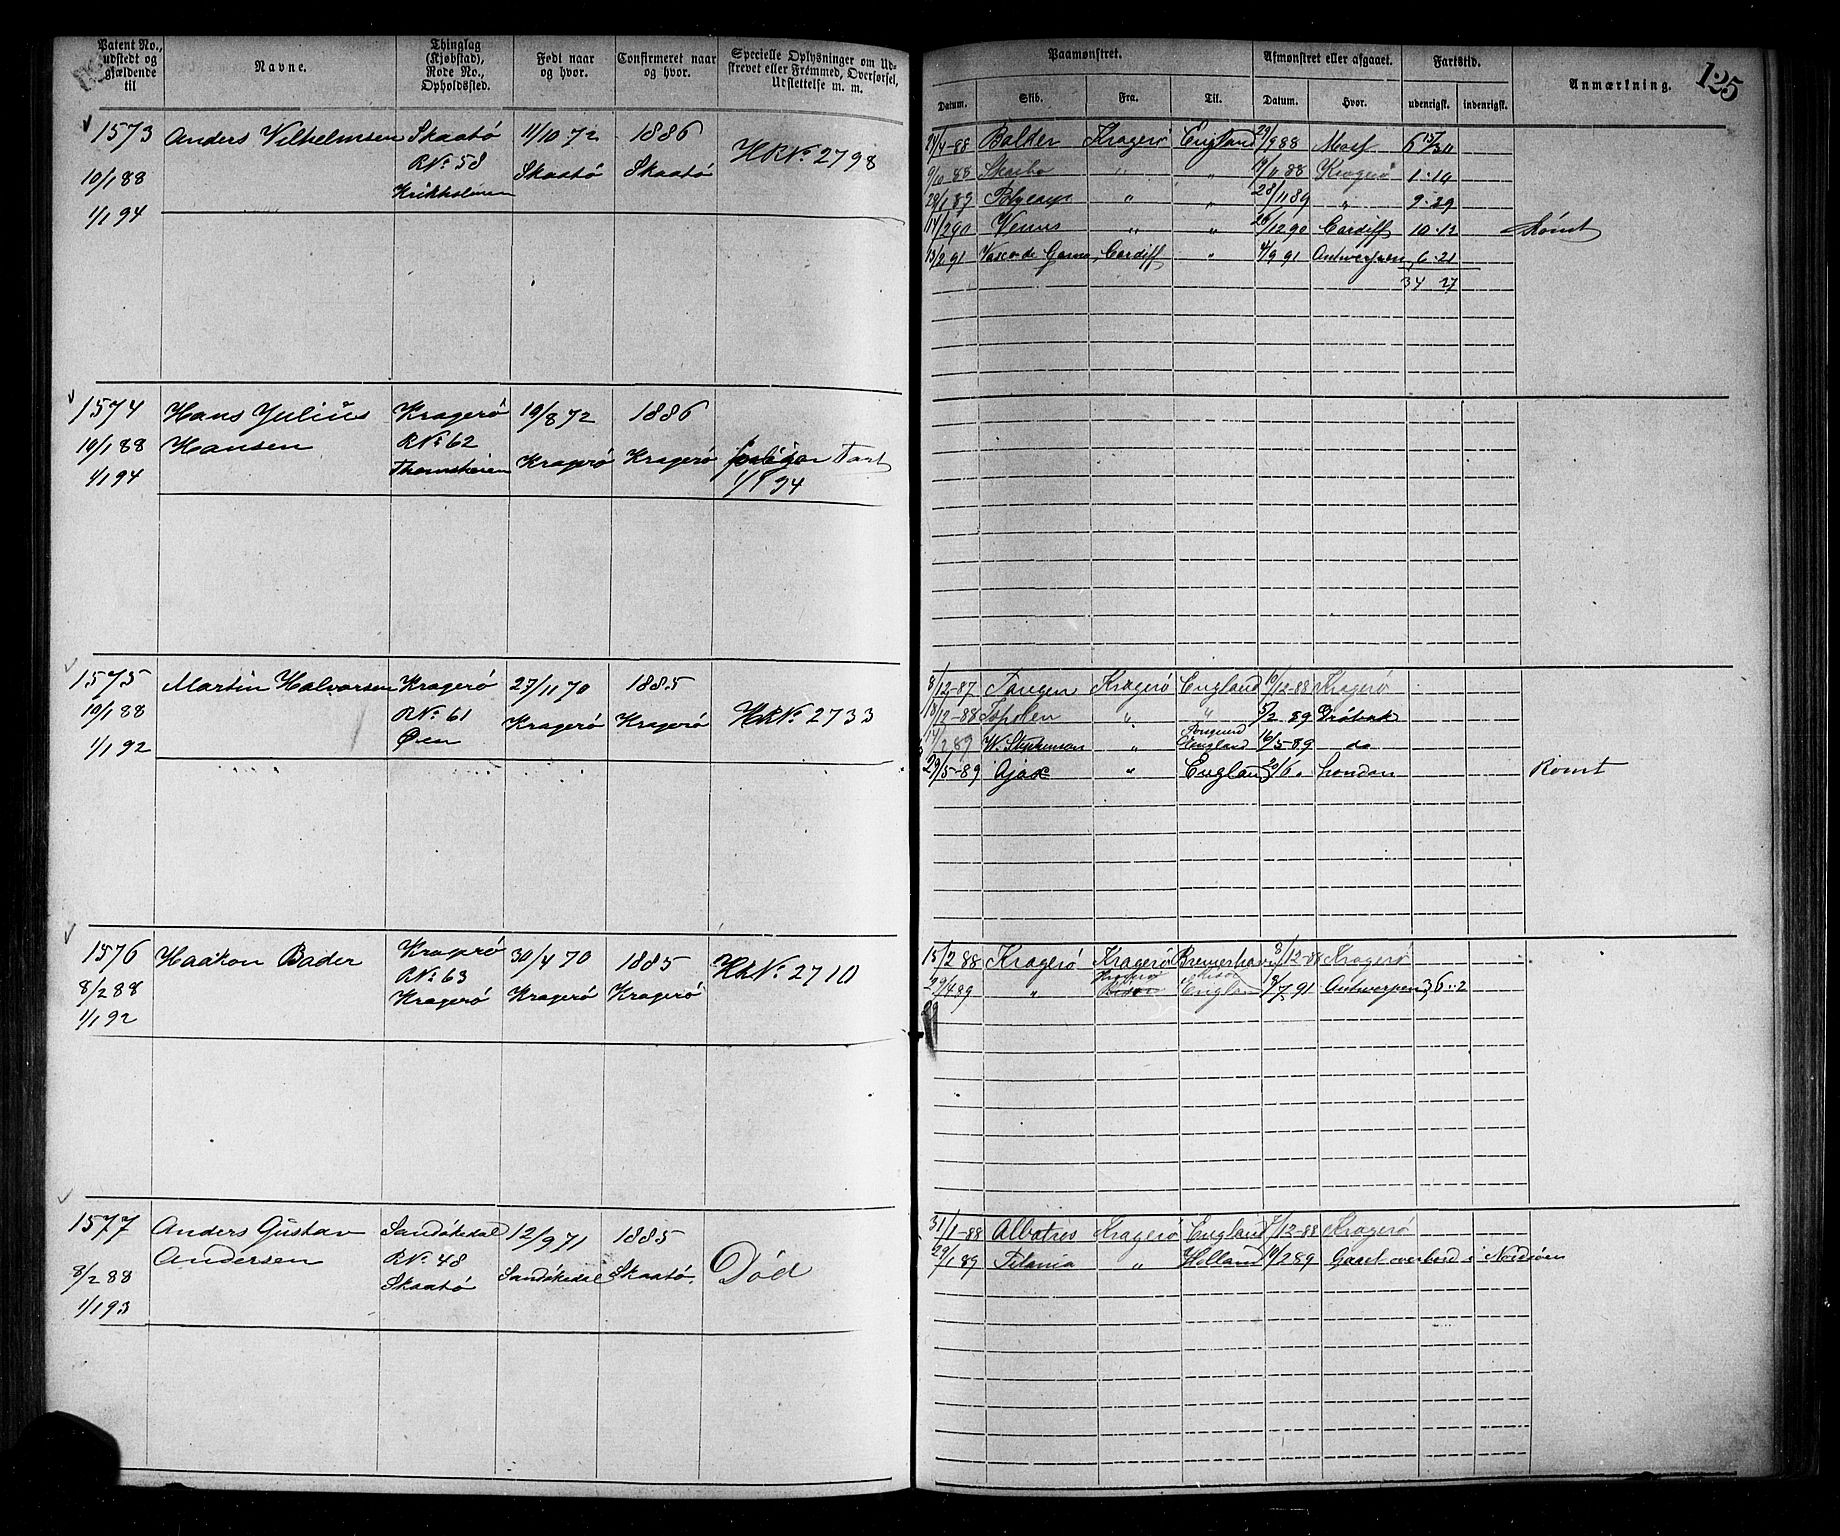 Patent No., udstedt og gjældende til
Navne.
Thinglag (Kjøbstad), Rode No., Opholdssted.
Født naar og hvor.
Confirmeret naar og hvor.
Specielle Oplysninger om Udskrevet eller Fremmed, Overførsel, Udslettelse m. m.
Paamønstret.
Afmønstret eller afgaaet.
Fartstid.
Anmærkning.
125
Datum. Skib. Fra. Til. Datum. Hvor. udenrigsk. indenrigsk.
1573 Anders Vilhelmsen Skaatø 11/10 72 1886
R№ 58 HR№ 2798
10/1 88 Skaatø Skaatø
Krikholmen
1/1 94
24/4-88 Balder Kragerø England 29/9 88 Moss 6 15/30
9/10 88 Skarbo " " 17/11 88 Kragerø 1.14
29/1 89 " " 28/11 89 " 9.29
14/2 90 Venus " " 26/12 90 Cardiff 10.12 Rømt
13/2 91 Vasco de Gama Cardiff " 4/9 91 Antwerpen 6.21
34 27
1574 Hans Julius Kragerø 19/8 72 1886
10/1 88 Hansen R№ 62
Kragerø Kragerø Fart
1/1 94 1/1 94
1575 Martin Halvorsen Kragerø 27/11 70 1885
10/1 88 R№ 61 Kragerø Kragerø HR№ 2733
1/1 92 Øen
8/12-87 Tangen Kragerø England 10/12-88 Kragerø
18/12-88 Topolen " " 5/2 89 Drøbak
14/2 89 W. Stephenson " England 16/5-89 do
29/5-89 Ajax " England London Rømt
1576 Haakon Bader Kragerø 30/4 70 1885 HR№ 2710
R№ 63
8/2 88 Kragerø Kragerø Kragerø
1/1 92
15/2 88 Kragerø Kragerø 8/12-88 Kragerø
29/4 89 " Kragerø England 8/7 91 Antwerpen 36..2
1577 Anders Gustav Sandøkedal 12/9 71 1885
Andersen R№ 48
8/2 88 Skaatø Sandøkedal Skaatø. Død
1/1 93
31/1-88 Albatros Kragerø England 7/12-88 Kragerø
29/1 89 Titania " Holland 4/2 89 Gaaet overbord i Nordsøen